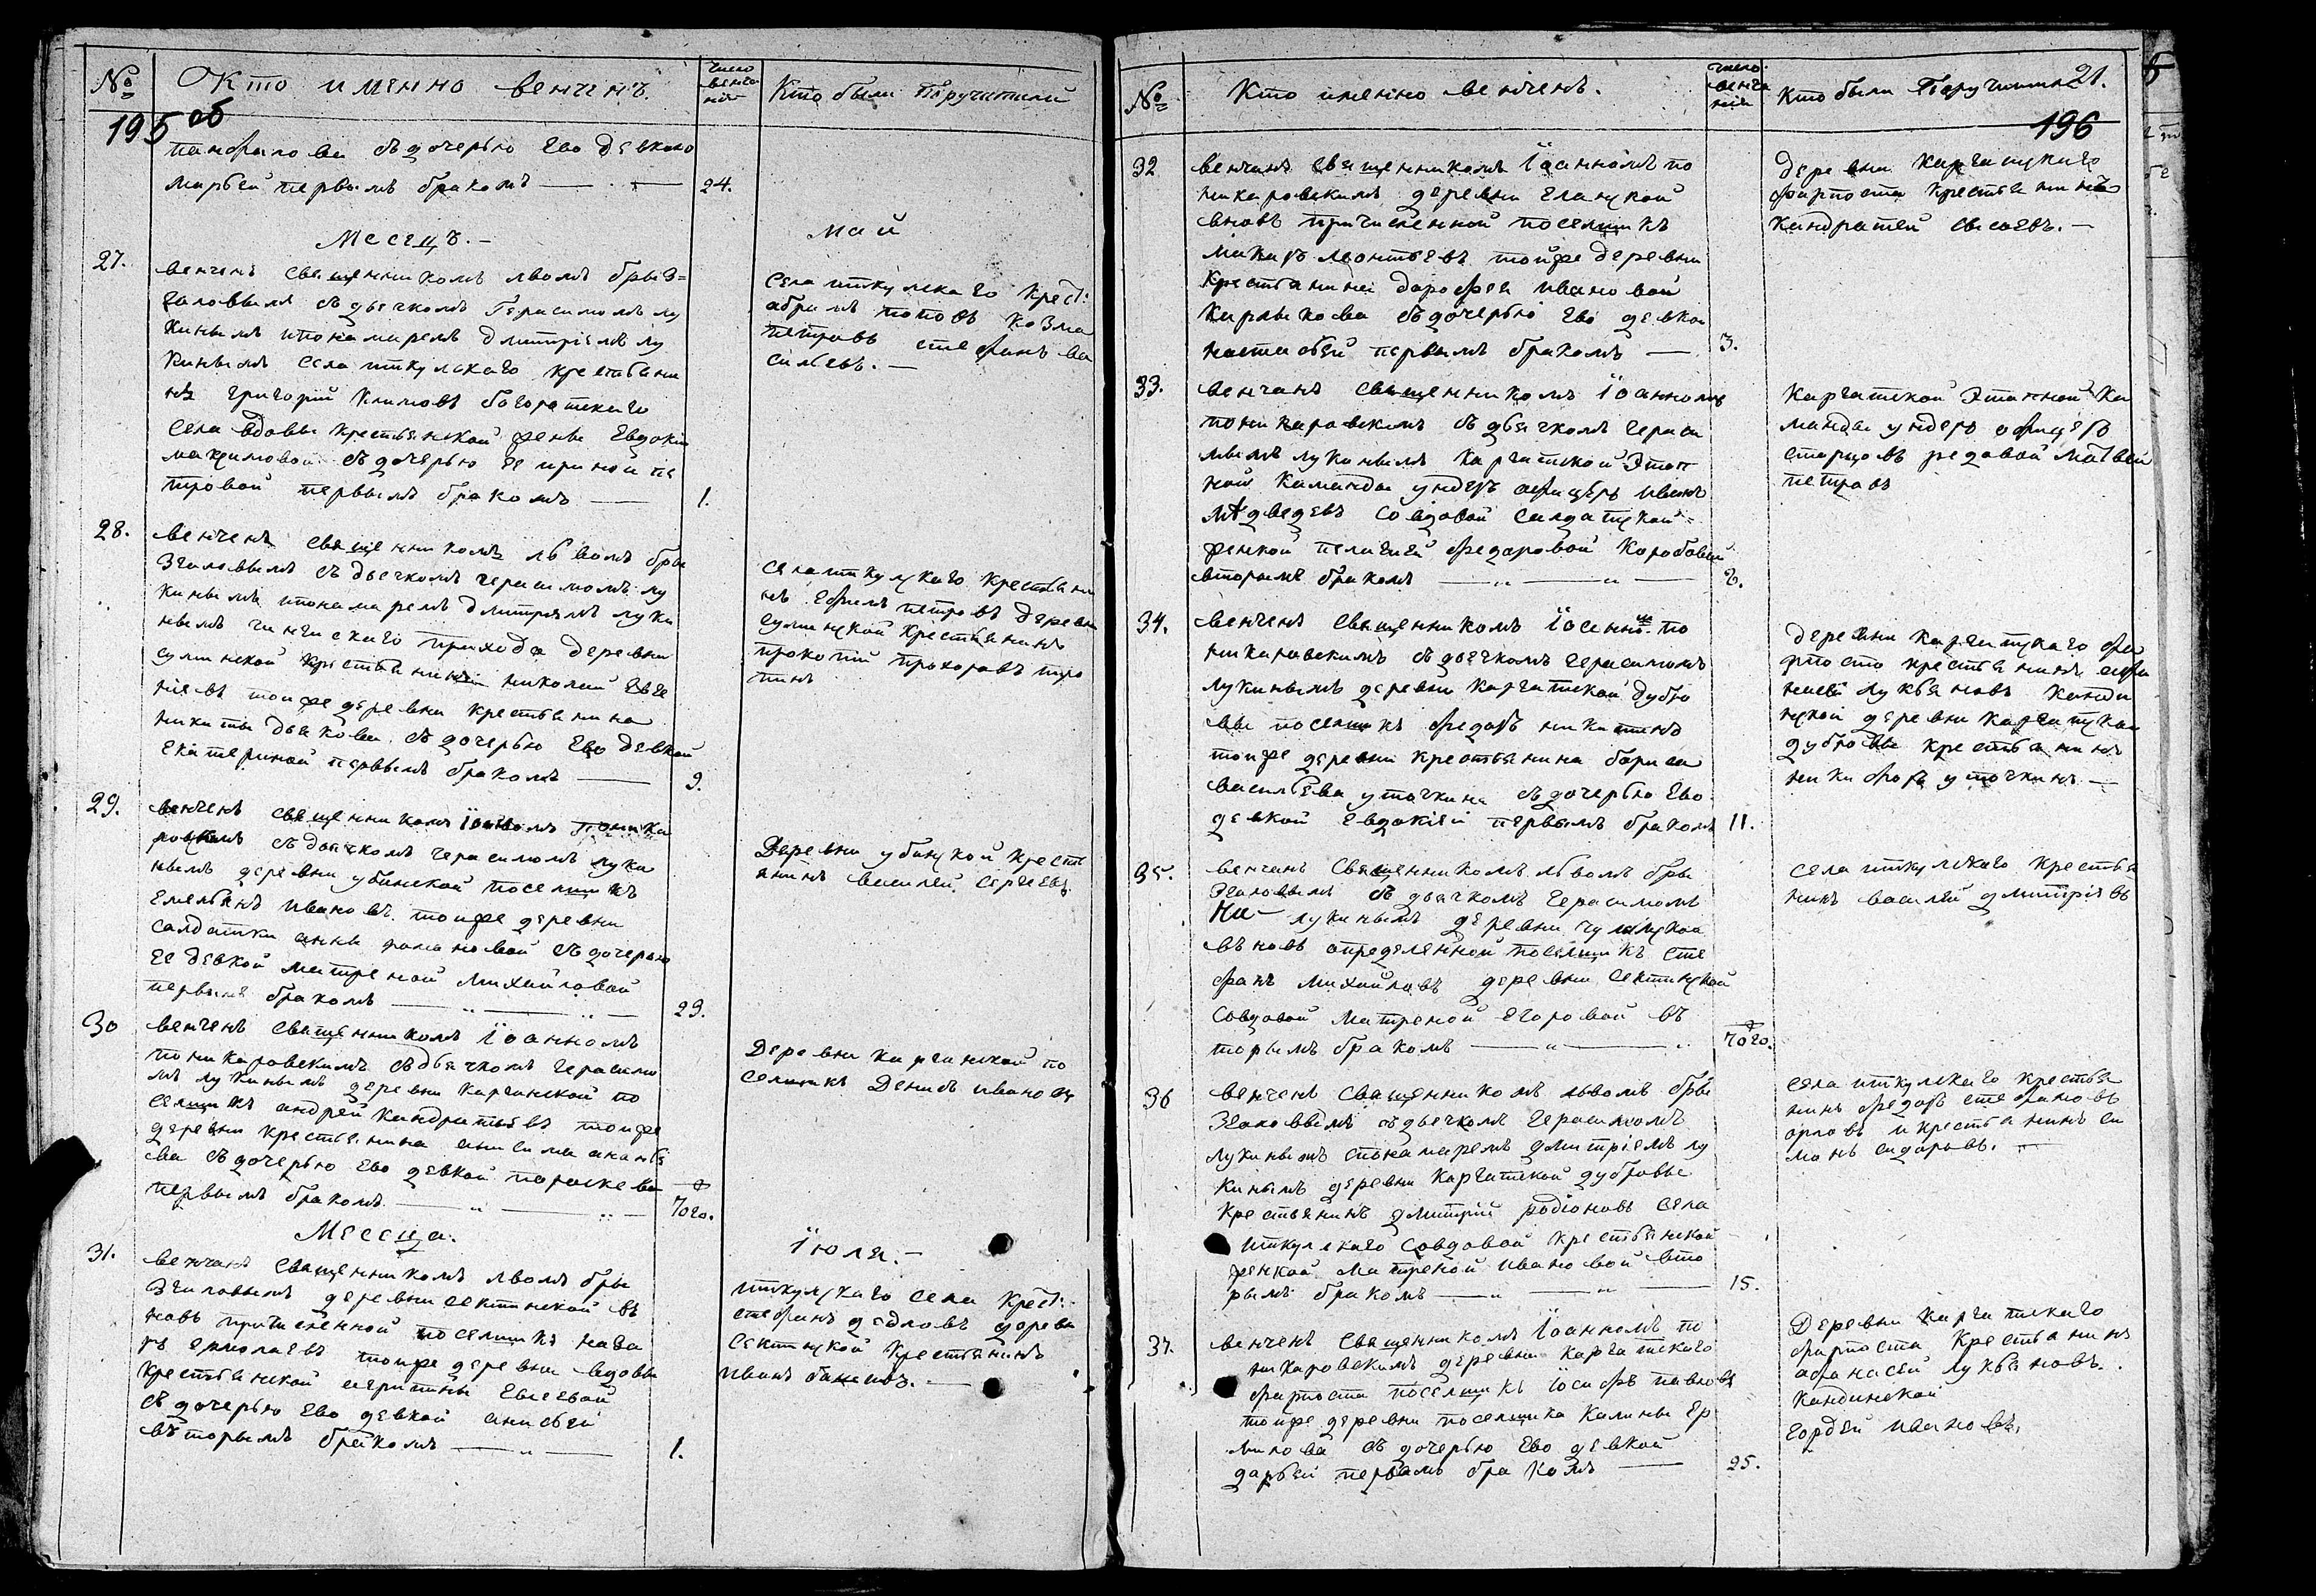 №
Кто имянно венченъ.
число венча нiя
Кто были Поручители
195 об
панфилова съ дочерью Ево девкою
марьей первымъ бракомъ
24.
Месецъ.
май
27.
венченъ священникомъ лвомъ брыз=
галовымъ съ дьячкомъ Герасимомъ лу
кинымъ ипонамаремъ дмитрiемъ лу
кинымъ села иткулскаго крестьяни
нъ григорiй климовъ богоратскаго
села вдовы крестьянской жены Евдокiи
максимовой съ дочерью ее ириной пе
тровой первымъ бракомъ
1.
села иткулскаго крест:
абрамъ поповъ козма
петровъ стефанъ ва
сильевъ.
28.
венченъ священникомъ лвомъ бры
згаловымъ съ дьячкомъ герасимомъ лу
кинымъ ипонамаремъ дмитриемъ луки
нымъ прихода деревни
сулинской крестьянинъ николай Евге
нiевъ тойже деревни крестьянина
никиты дьякова съ дочерью Ево девкой
екатериной первымъ бракомъ
9.
села иткулскаго крестьяни
нъ ефимъ петровъ деревни
сулинской крестьянинъ
прокопiй прохоровъ
29.
венченъ священникомъ Iоанномъ поника
ровскимъ съ дьячкомъ герасимомъ луки
нымъ деревни убинской поселщикъ
Емельянъ ивановъ тойже деревни
салдатки анны романовой съ дочерью
ее девкой матреной михайловой
первымъ бракомъ
29.
Деревни убинской кресть
янинъ василей сергеевъ
30
венченъ священникомъ Iоанномъ
поникаровскимъ съ дьячкомъ герасимо
мъ лукинымъ деревни каргинской по
селщикъ андрей кандратьевъ тойже
деревни крестьянина анисима ананье
ва съ дочерью Ево девкой
первымъ бракомъ
того.
Деревни каргинской по
селщикъ Денисъ ивановъ
Месеца.
Iюля.
31.
венчанъ священникомъ лвомъ бры
згаловымъ деревни сектинской въ
новъ причисленной поселщикъ наза
ръ ермолаевъ тойже деревни вдовы
крестьянской Евсеевой
съ дочерью Ево девкой анисьей
вторымъ бракомъ
1.
иткулскаго села крест:
стефанъ дедловъ деревн
сектинской крестьянинъ
иванъ
№
Кто именно венченъ.
число венча нiя
Кто были Поручители
21.
196
32
венчанъ священникомъ Iоанномъ по
никаровскимъ деревни еланской
вновь причисленной поселщикъ
макаръ леонтьевъ тойже деревни
крестьянина дорофея ивановой
карлыкова съ дочерью Ево девкой
настасьей первымъ бракомъ
3.
деревни каргатскаго
форпоста крестьянинъ
кандратей евсеевъ.
33.
венчанъ священникомъ Iоанномъ
поникаровскимъ съ дьячкомъ гераси
мымъ лукинымъ каргатской Этап
ной команды ундеръ афицеръ иванъ
медведевъ совдовой салдатской
женкой пелагией федоровой коробовой
вторымъ бракомъ
Каргатской Этапной ка
манды ундеръ офицеръ
старцовъ редовой матвей
петровъ
34.
венченъ священникомъ Iоанномъ по
никаровскимъ съ дьячкомъ герасимомъ
лукинымъ деревни каргатской дубро
вы поселщикъ федоръ никитинъ
тойже деревни крестьянина бориса
васильева уточкина съ дочерью Ево
девкой евдокiей первымъ бракомъ
11.
деревни каргатскаго фо
рпоста крестьянинъ афа
насей лукьяновъ канди
нской деревни каргатской
дубровы крестьянинъ
никифоръ уточкинъ
35.
венчанъ священникомъ лвомъ бры
згаловымъ съ дьячкомъ герасимомъ
лукинымъ деревни чулымской
въновь определенной поселщикъ сте
фанъ михайловъ деревни сектинской
совдовой матреной Егоровой въ
торымъ бракомъ
того.
села иткулскаго крестья
нинъ василiй дмитрiевъ
36
венченъ священникомъ лвомъ бры
згаловымъ съ дьячкомъ герасимомъ
лукинымъ спонамаремъ дмитрiемъ лу
кинымъ деревни каргатской дубровы
крестьянинъ дмитрiй родiоновъ села
иткулскаго совдовой крестьянской
женкой матреной ивановой вто
рымъ бракомъ
15.
села иткулскаго крестья
нинъ федоръ стефановъ
орловъ и крестьянинъ си
монъ сидоровъ.
37.
венченъ священникомъ Iоанномъ по
никаровскимъ деревни каргатскаго
форпоста поселщикъ Iосифъ павловъ
тойже деревни поселщика калины Ер
милова съ дочерью Ево девкой
дарьей первымъ бракомъ
25.
Деревни каргатскаго
форпоста крестьянинъ
афанасей лукьяновъ.
кандинской
гордей ивановъ.